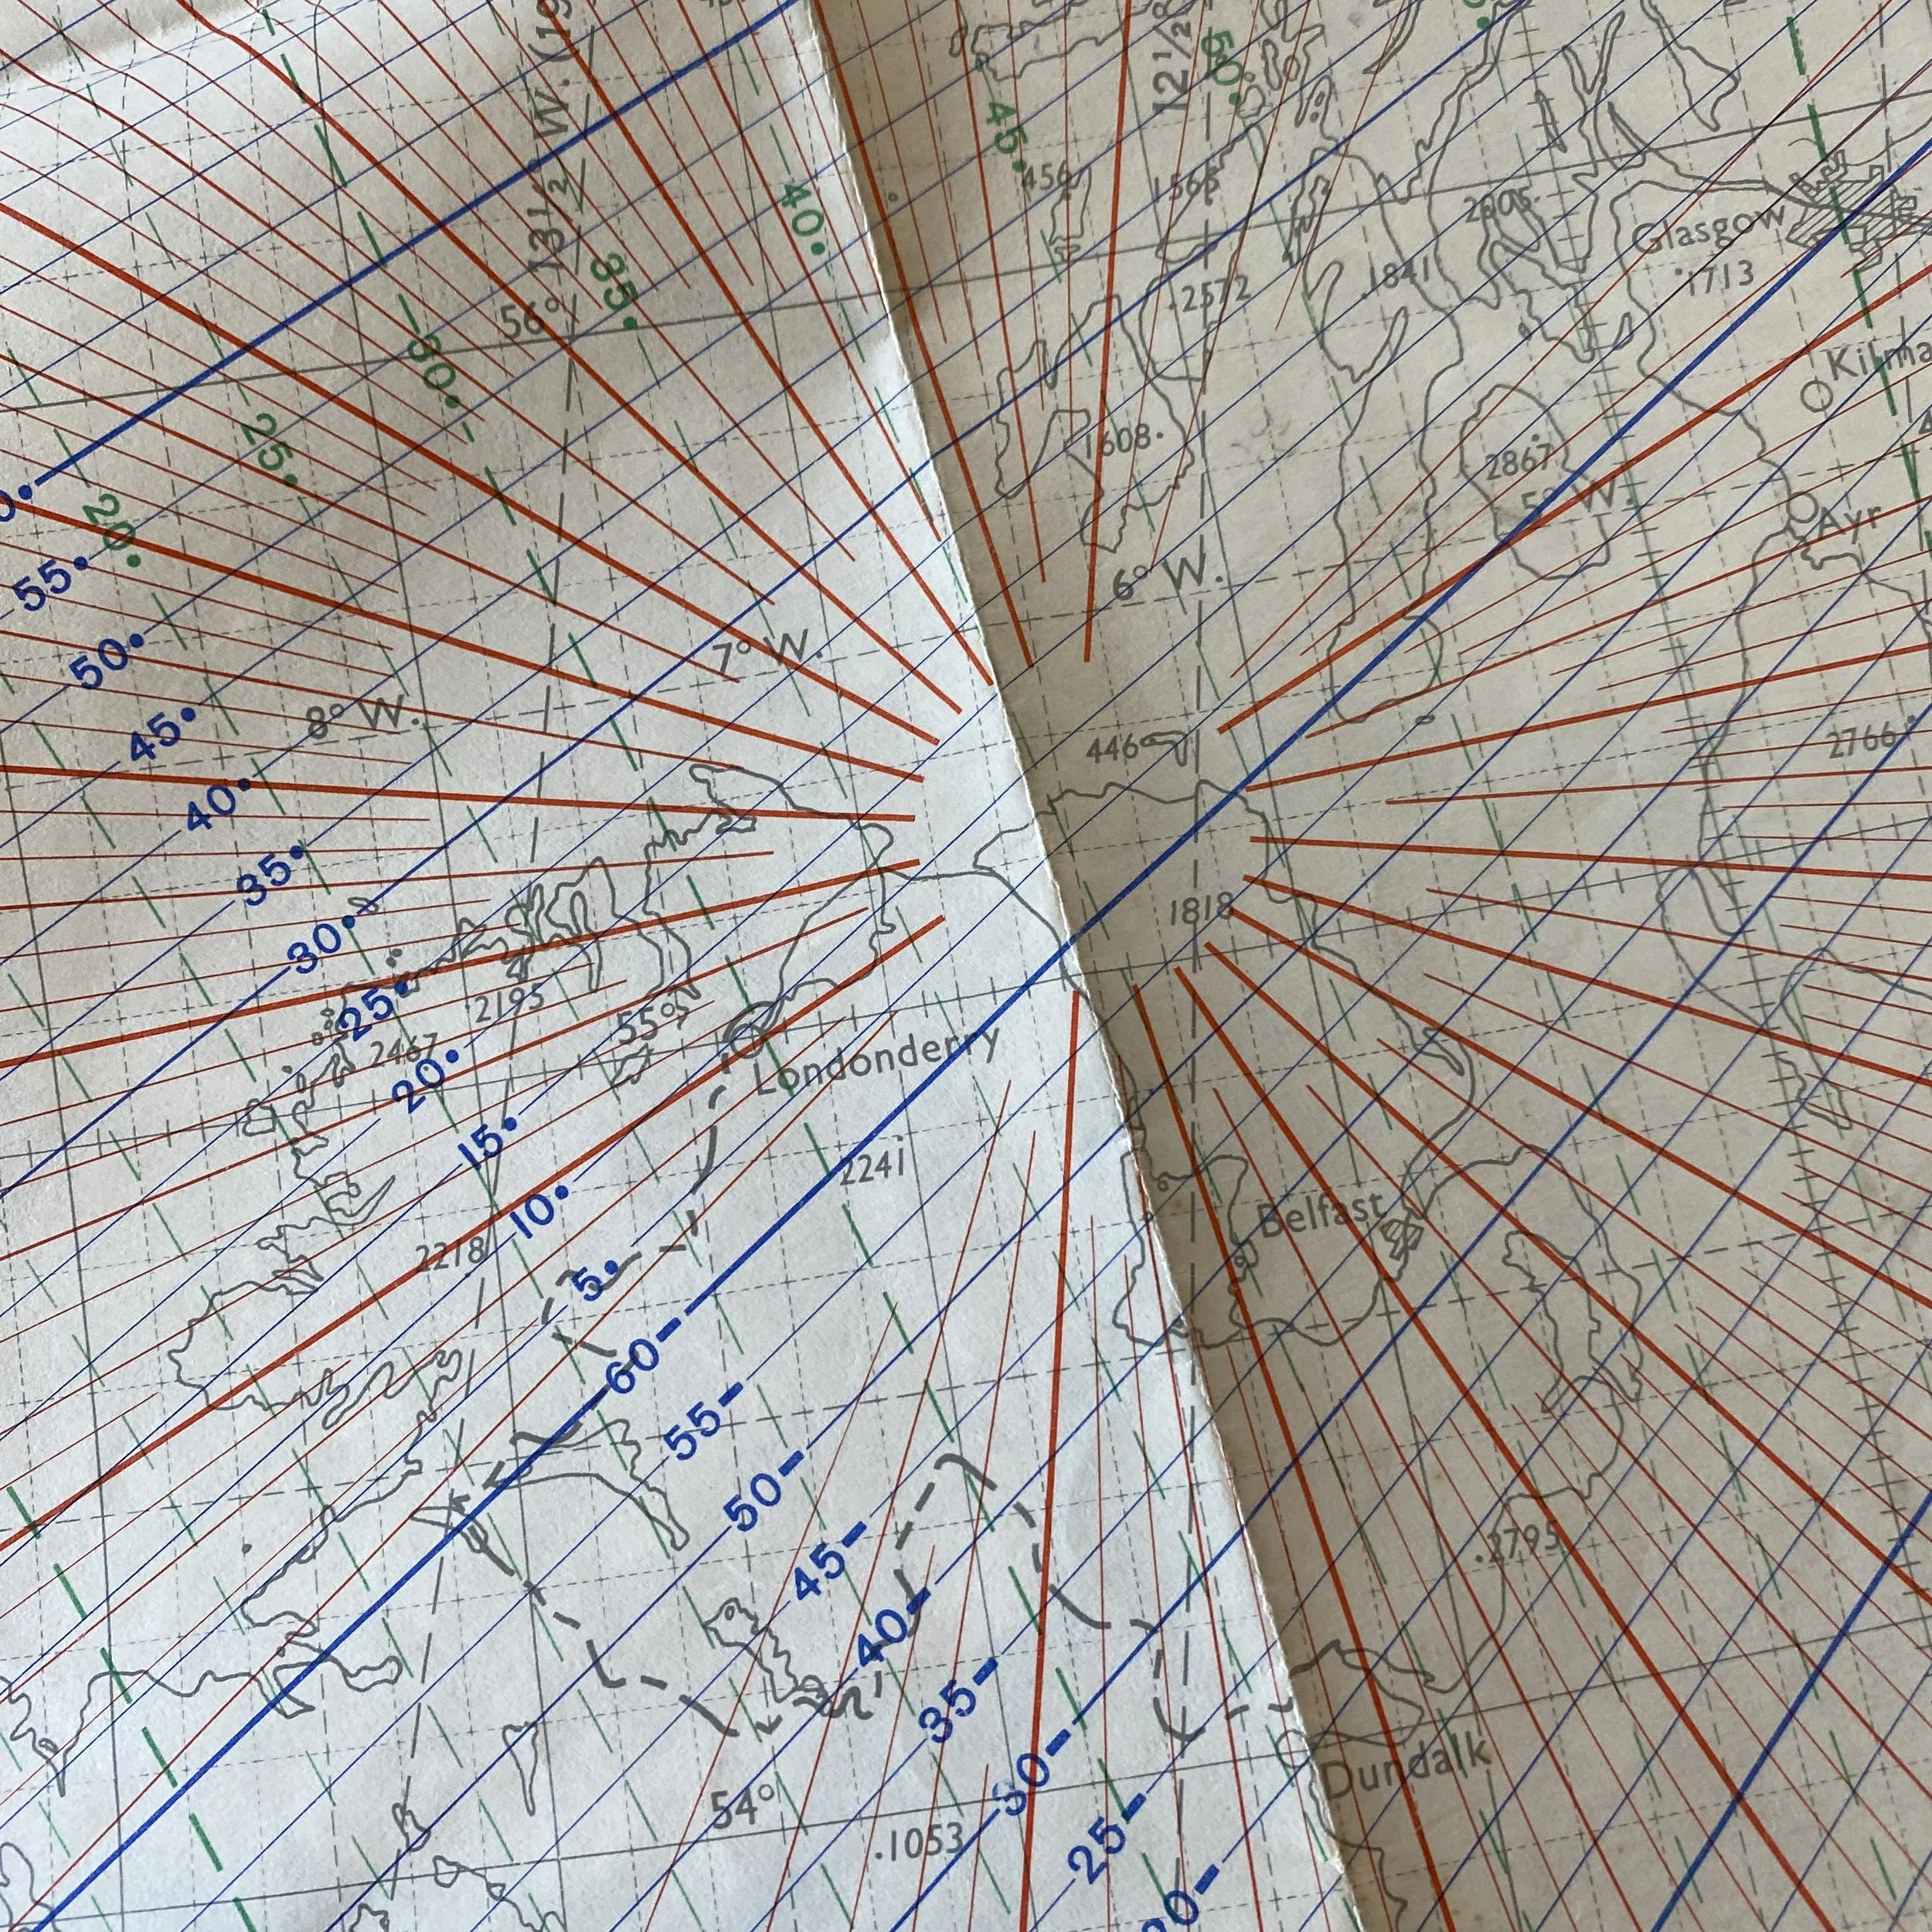 12½
131½ W. (19
50.
45.
40.
456
565
2905.
Glasgow
.1713
.1841
.2572
35.
56°
30.
25.
20.
1608.
2867
5° W.
Ayr
6° W.
7° W.
8° W.
446
2766
55.
50.
45.
40.
35.
30.
25.
20.
15.
10.
5.
1818
2195
2467
55°
Londonderry
2241
Belfast
2218
60-
55-
50-
45-
40-
35-
30-
25-
.2795
Dundalk
54°
.1053